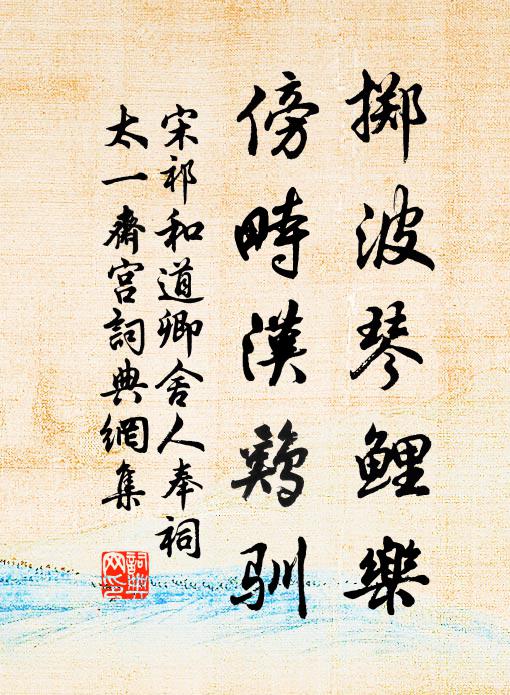 掷波琴鲤樂
傍畤漢鷄馴
宋祁和道卿舍人奉祠
太一齋宫詞典網集